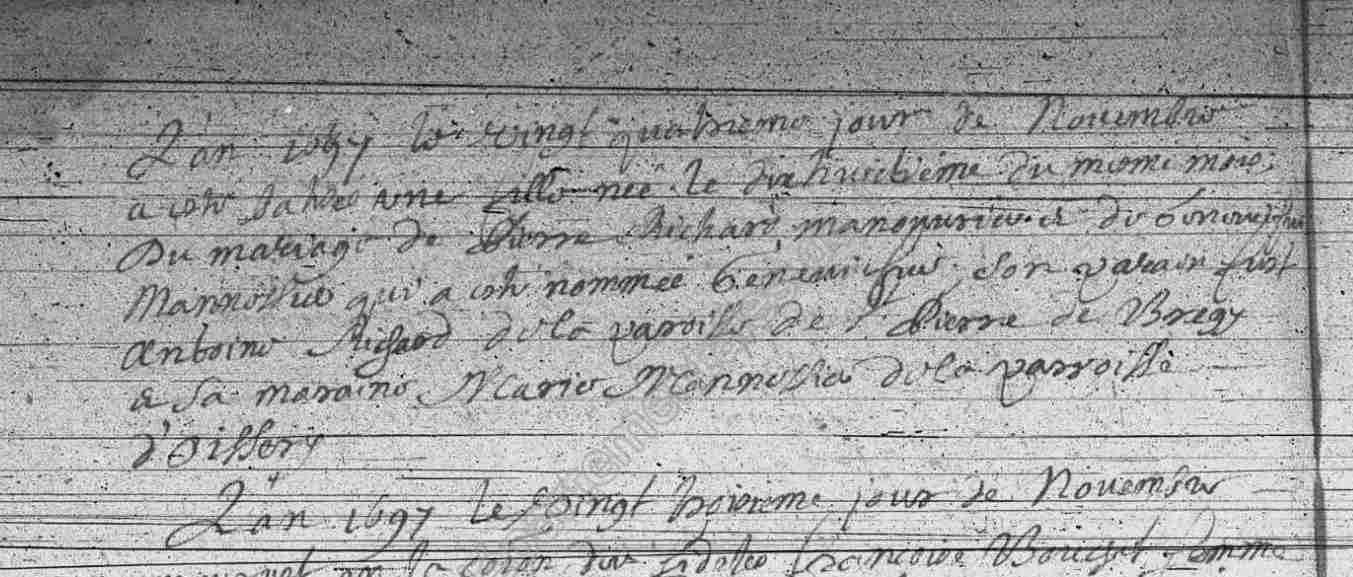 L'an 1697 le vingt quatrieme jour de Novembre
a esté une fille née le dixhuictiéme du mesme mois
du mariage de Pierre Richard manouvrier & de Genevieve
qui a esté nommée Genevieфve son parain fust
Antoine Richard de la paroisse de St Pierre de Bregy
& sa maraine Marie de la parroisse
d'Oissery
L'an 1697 le vingt troisieme jour de Novembre
françoise femme